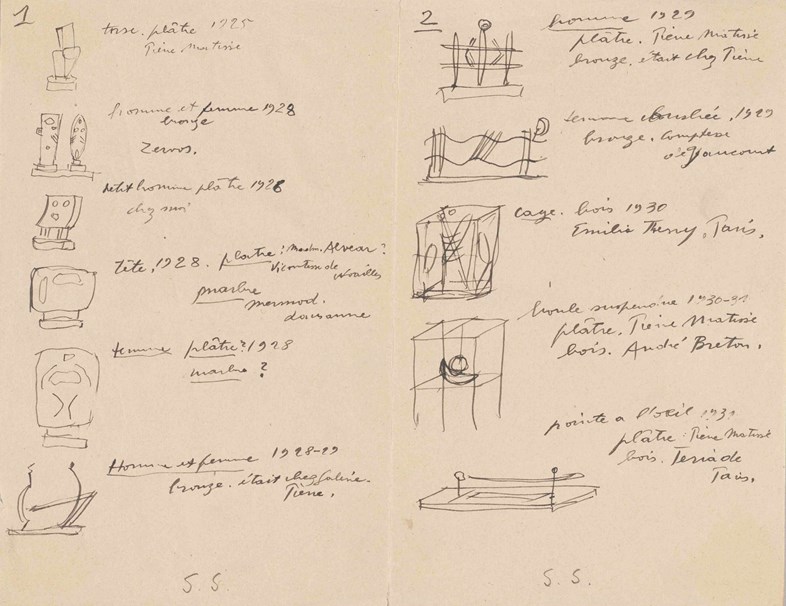 1
torse. plâtre 1925
Pierre Matisse
homme et femme 1928
bronze
Zervos.
petit homme plâtre 1926
chez moi
tête, 1928. plâtre: Madm. Alvear?
Vicomtesse de Noailles
marbre
mermod.
Lausanne
femme plâtre? 1928
marbre ?
Homme et femme 1928-29
bronze. était chez Galérie.
Pierre.
S. S.
2
homme 1929
plâtre. Pierre Matisse
bronze. était chez Pierre
femme couchée, 1929
bronze. Comptesse
cage. bois 1930
Emilio Terry, Paris.
boule suspendue 1930-31
plâtre. Pierre Matisse
bois. André Breton.
pointe a l'oeil 1931
plâtre Pierre Matisse
bois. Teriade
Paris.
S. S.